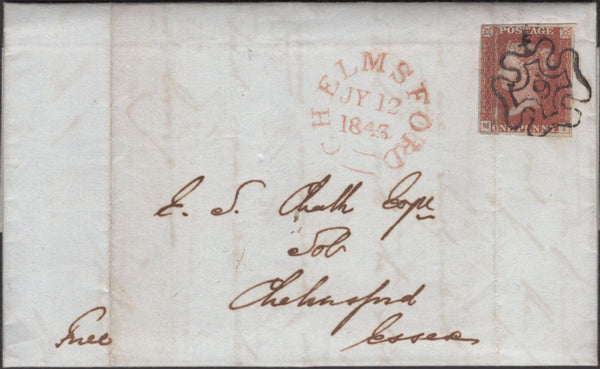 POSTAGE
ONE PENNY
CHELMSFORD
JY 12
1843
E. S. Chalk Esqr
Sol
Chelmsford
Free
Essex